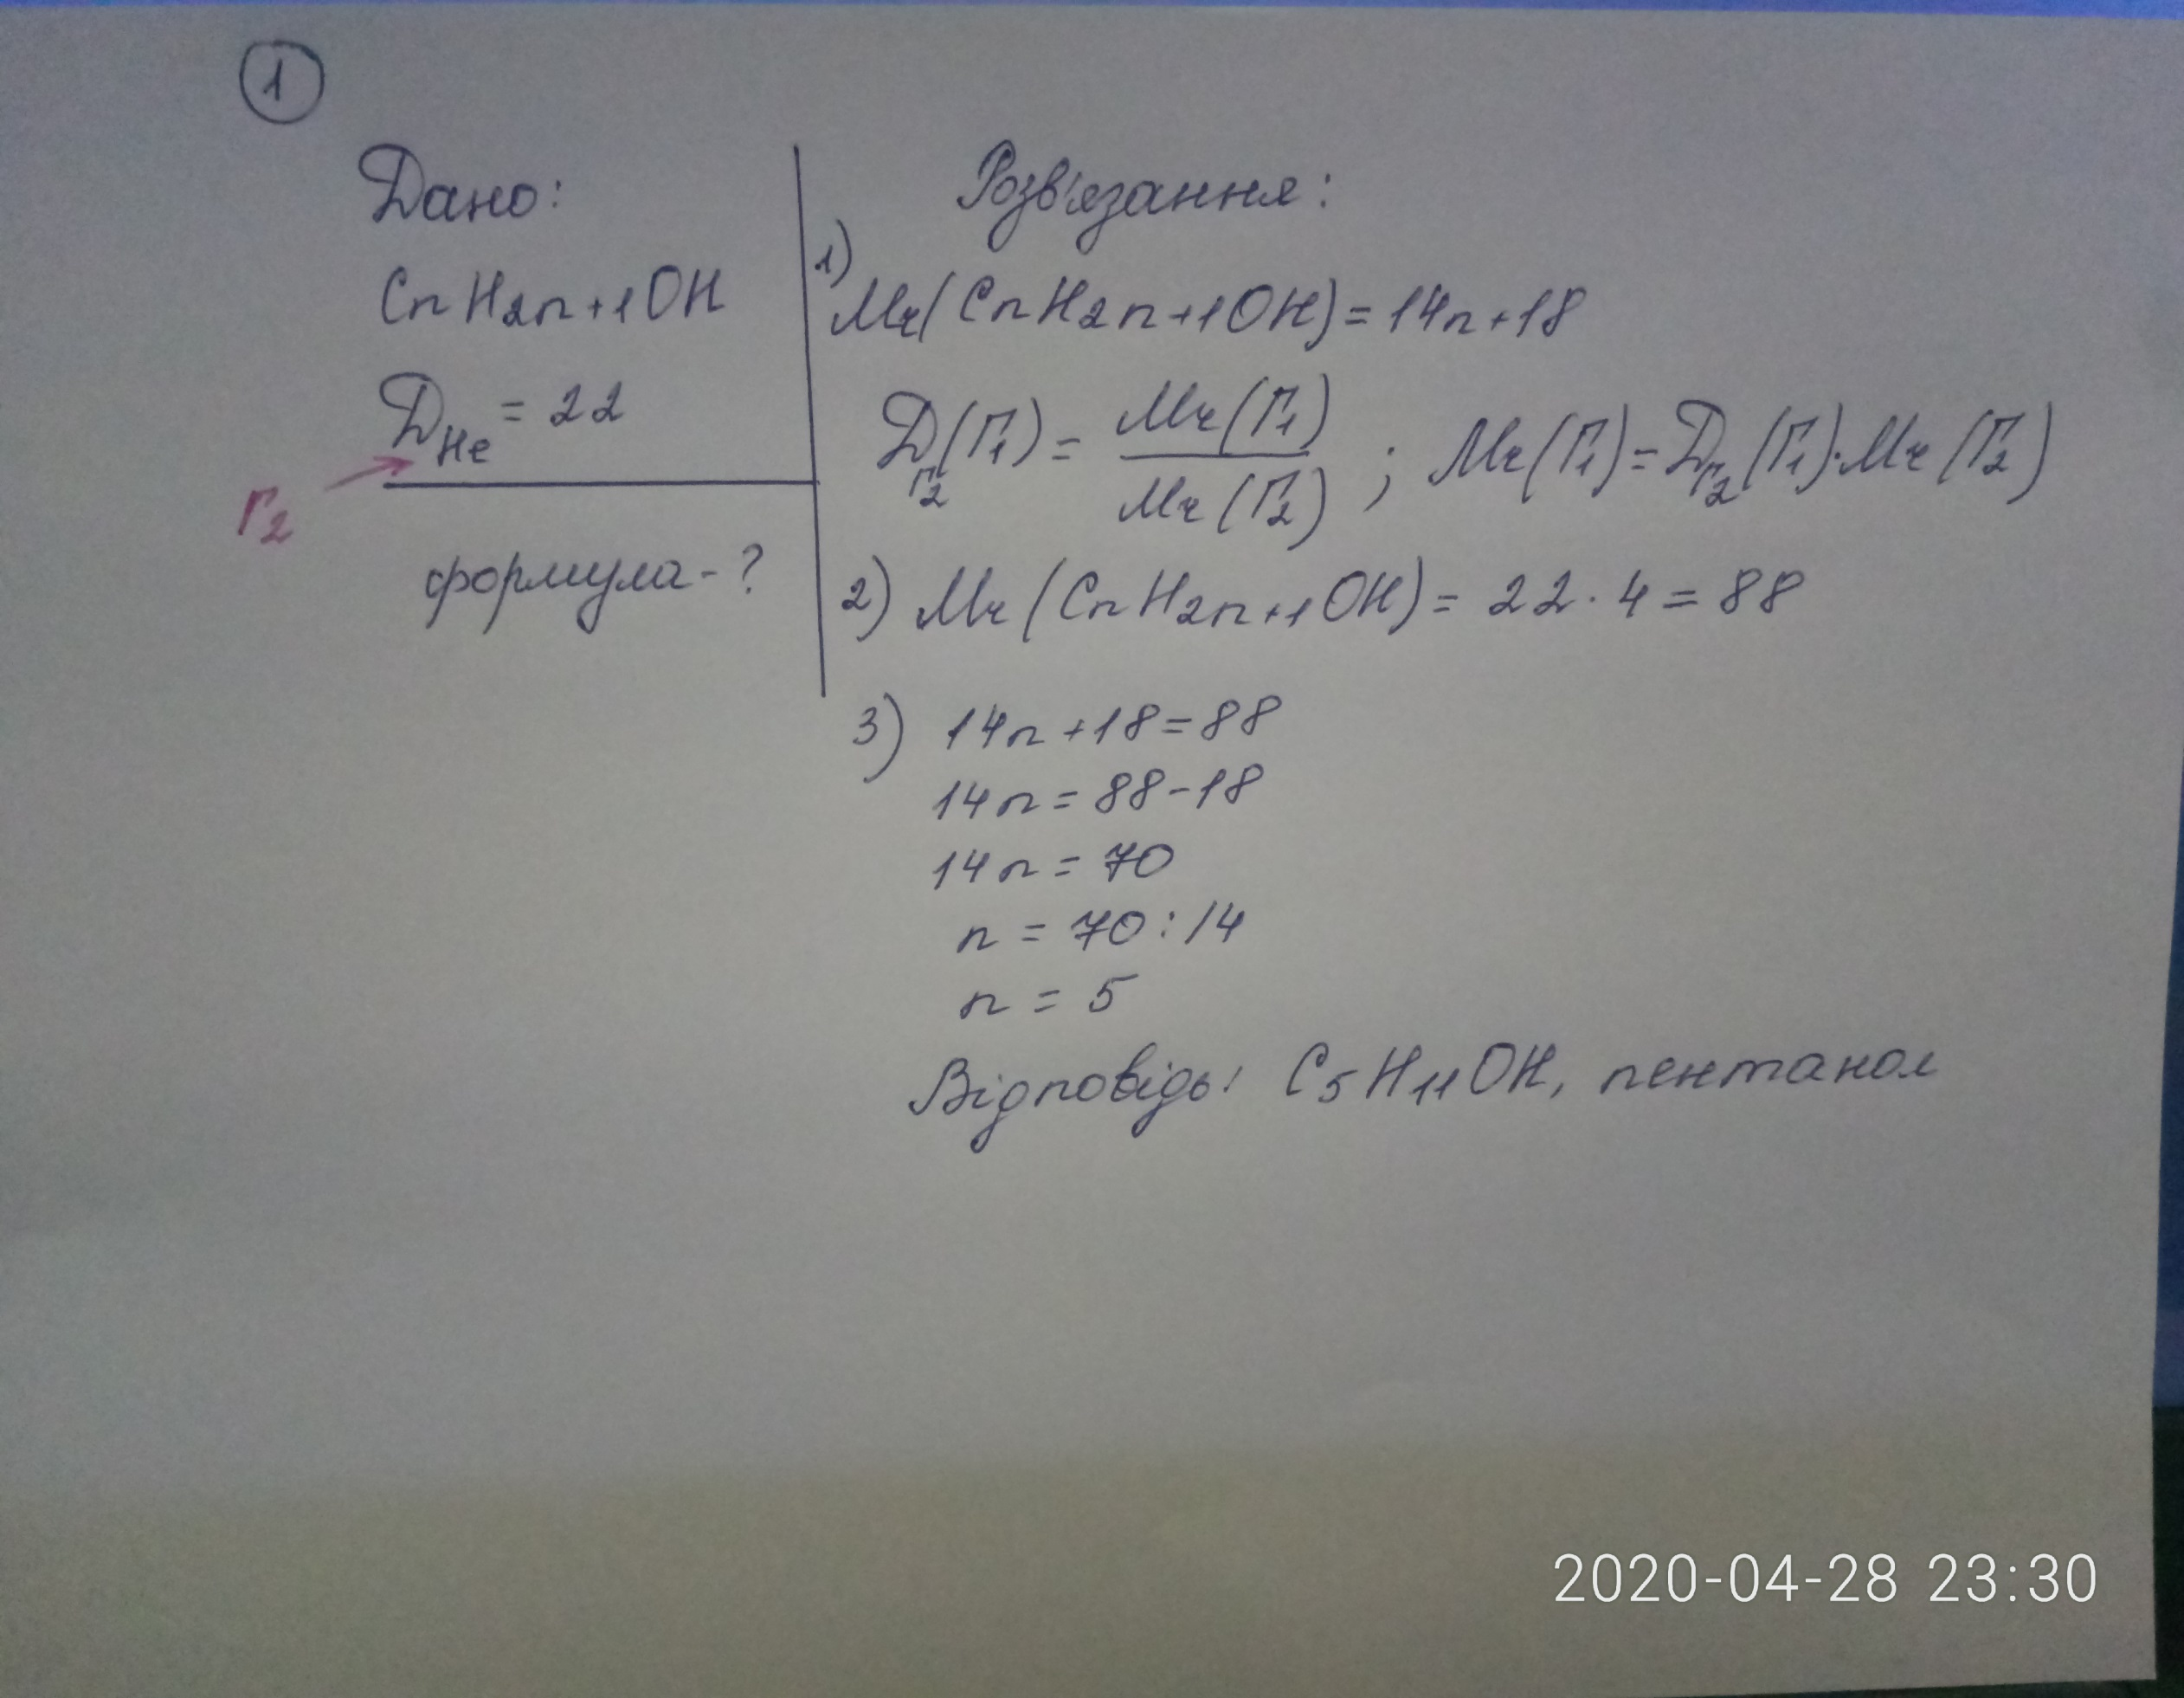 1
Дано:
CnH2n+1OH
DHe = 22
Г2
формула - ?
Розв'язання:
1) Mr(CnH2n+1OH) = 14n+18
DГ2(Г1) = Mr(Г1) / Mr(Г2) ; Mr(Г1) = DГ2(Г1)·Mr(Г2)
2) Mr(CnH2n+1OH) = 22·4 = 88
3) 14n+18=88
14n = 88-18
14n = 70
n = 70:14
n = 5
Відповідь: C5H11OH, пентанол
2020-04-28 23:30